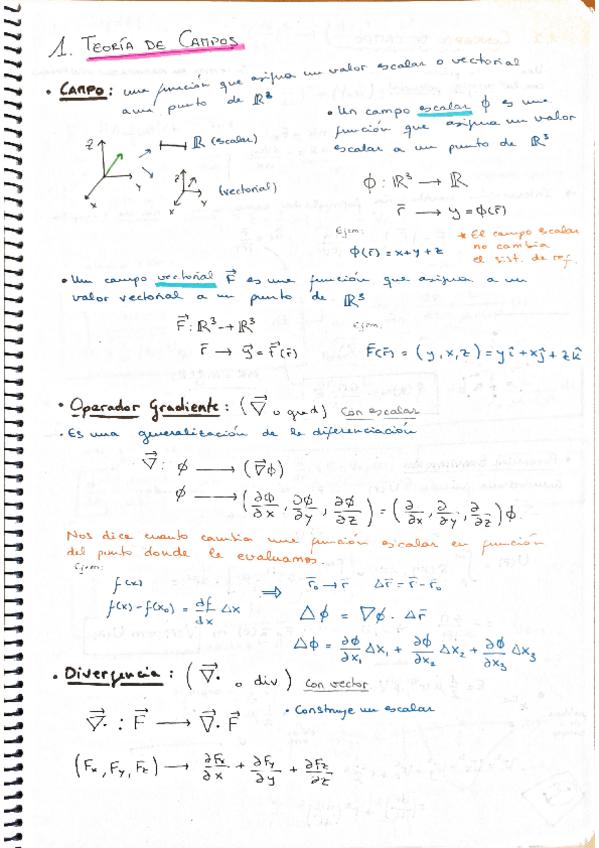 1. TEORÍA DE CAMPOS
• CAMPO: una función que asigna un valor escalar o vectorial
a un punto de ℝ³
z y x
ℝ (escalar)
z y x
(vectorial)
• Un campo escalar ϕ es una
función que asigna un valor
escalar a un punto de ℝ³
ϕ : ℝ³ → ℝ
r̄ → y = ϕ(r̄)
Ejem:
ϕ(r̄) = x+y+z
* El campo escalar
no cambia
el sist. de ref.
• Un campo vectorial F⃗ es una función que asigna a un
valor vectorial a un punto de ℝ³
F⃗ : ℝ³ → ℝ³
r̄ → y⃗ = F⃗(r̄)
Ejem:
F̄(r̄) = (y, x, z) = yî + xĵ + zk̂
• Operador Gradiente: (∇⃗ o grad) con escalar
• Es una generalización de la diferenciación
∇⃗ : ϕ → (∇⃗ϕ)
ϕ → (∂ϕ/∂x, ∂ϕ/∂y, ∂ϕ/∂z) = (∂/∂x, ∂/∂y, ∂/∂z) ϕ.
Nos dice cuanto cambia una función escalar en función
del punto donde la evaluamos.
Ejem:
f(x)
f(x) - f(x₀) = df/dx Δx
⇒
r̄₀ → r̄ Δr̄ = r̄ - r̄₀
Δϕ = ∇ϕ · Δr̄
Δϕ = ∂ϕ/∂x₁ Δx₁ + ∂ϕ/∂x₂ Δx₂ + ∂ϕ/∂x₃ Δx₃
• Divergencia: (∇⃗· o div) con vector
• Construye un escalar
∇⃗· : F⃗ → ∇⃗· F⃗
(Fx, Fy, Fz) → ∂Fx/∂x + ∂Fy/∂y + ∂Fz/∂z